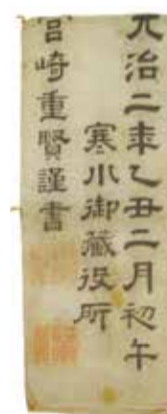 元治二年乙丑二月初午
寒水御藏役所
宮崎重賢謹書